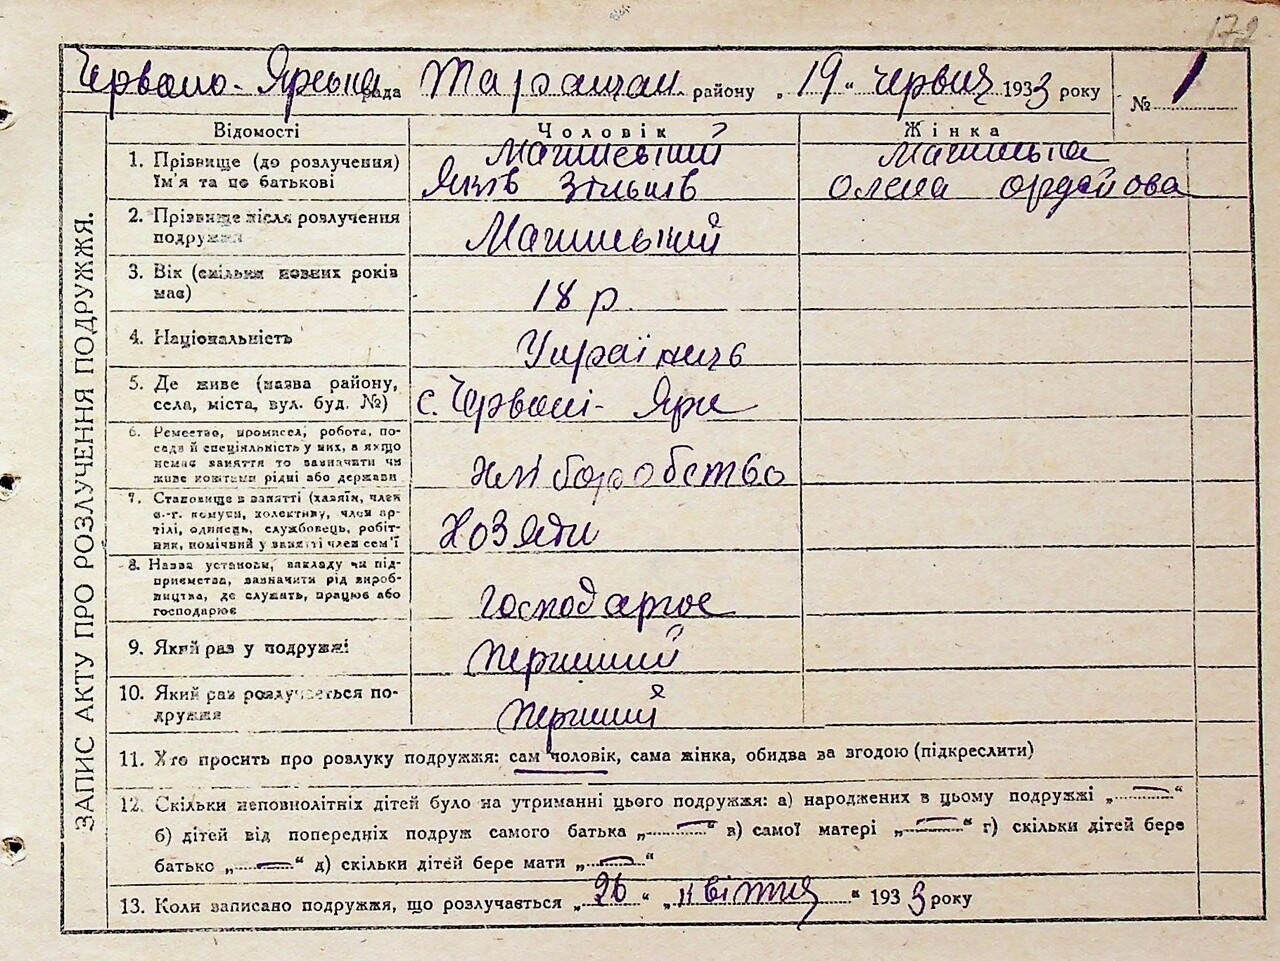 172
Червоно-Ярська рада Таращан. району „19“ червня 1933 року № 1
ЗАПИС АКТУ ПРО РОЗЛУЧЕННЯ ПОДРУЖЖЯ.
Відомості Чоловік Жінка
1. Прізвище (до розлучення)
Ім'я та по батькові
Яків
Олена
2. Прізвище після розлучення
подружжя
3. Вік (скільки повних років
має)
18 р.
4. Національність
Українець
5. Де живе (назва району,
села, міста, вул. буд. №)
с. Червоні-Яри
6. Ремество, промисел, робота, по-
сада й спеціяльність у них, а якщо
немає заняття то зазначити чи
живе коштами рідні або держави
хліборобство
7. Становище в занятті (хазяїн, член
с.-г. комуни, колективу, член ар-
тілі, одинець, службовець, робіт-
ник, помічний у занятті член сем'ї
8. Назва установи, закладу чи під-
приємства, зазначити рід вироб-
ництва, де служить, працює або
господарює
господарює
9. Який раз у подружжі
перший
10. Який раз розлучається по-
дружжя
перший
11. Хто просить про розлуку подружжя: сам чоловік, сама жінка, обидва за згодою (підкреслити)
12. Скільки неповнолітніх дітей було на утриманні цього подружжя: а) народжених в цьому подружжі „—“
б) дітей від попередніх подруж самого батька „—“ в) самої матері „—“ г) скільки дітей бере
батько „—“ д) скільки дітей бере мати „—“
13. Коли записано подружжя, що розлучається „26“ „квітня“ 1933 року